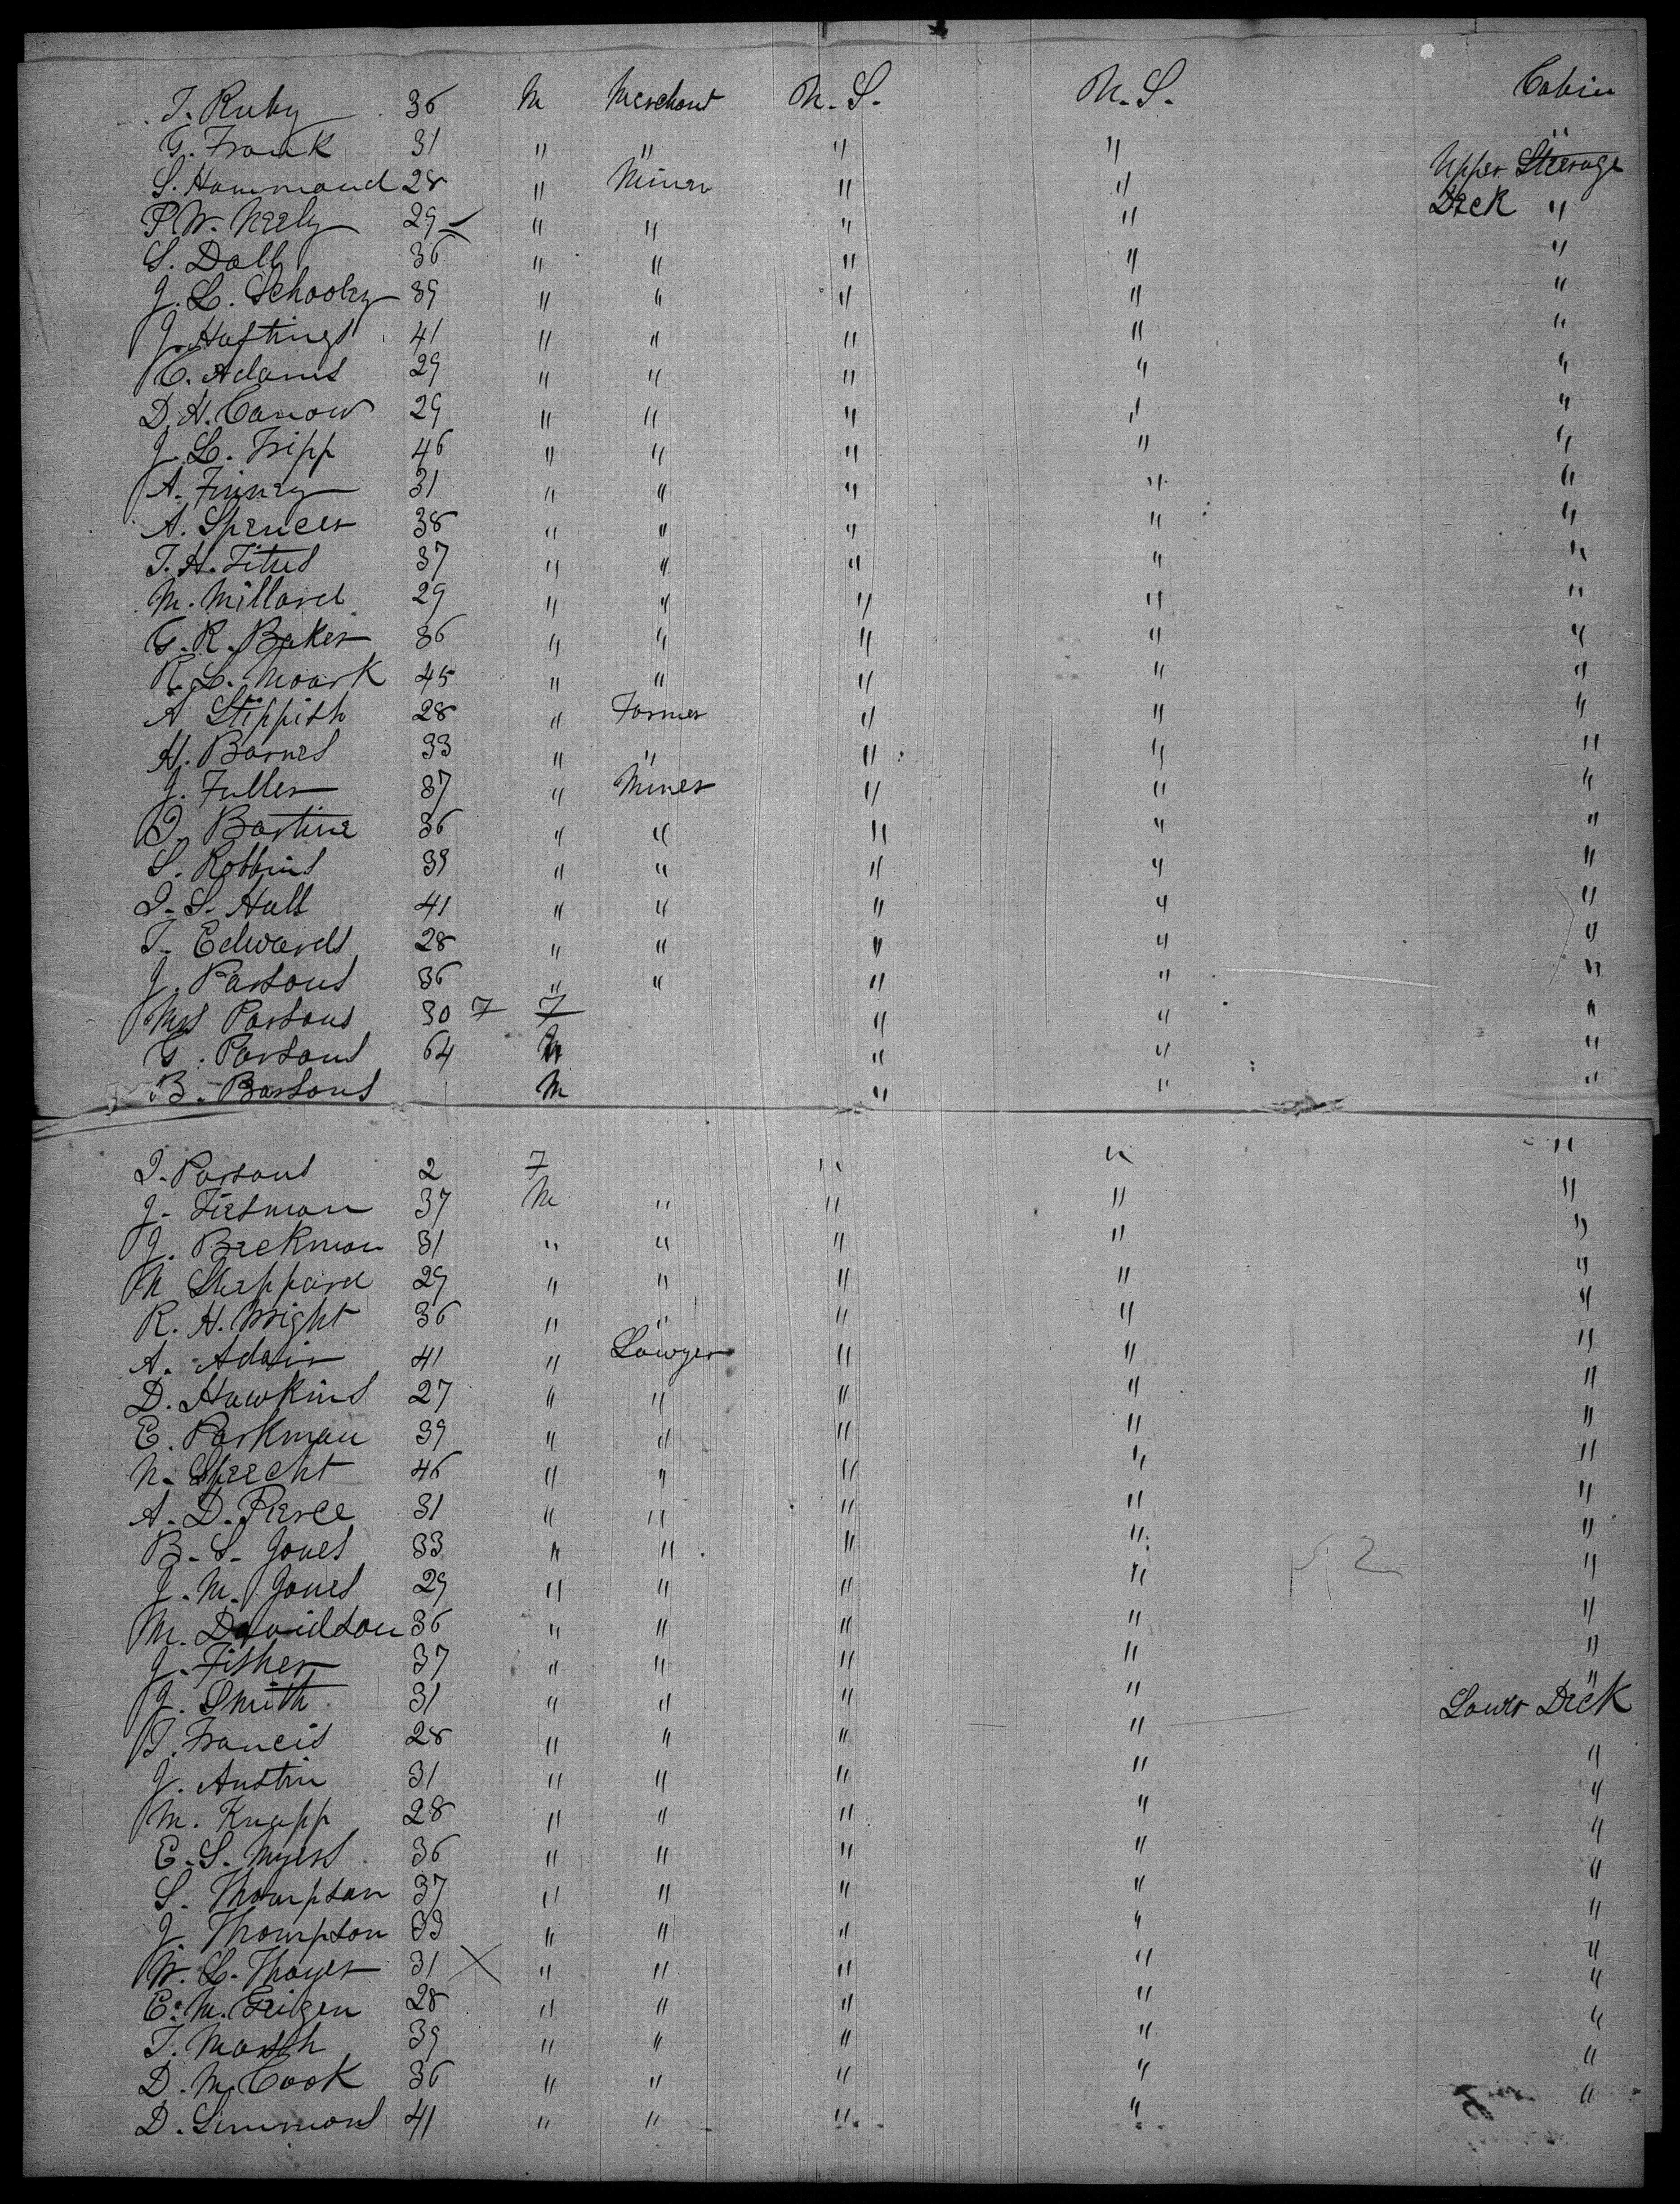 T. Ruby 36 M Merchant U.S. U.S. Cabin
G. Frank 31 " " " " "
S. Hammond 28 " Miner " " Upper Steerage
P. W. Neely 29 " " " " Deck "
S. Doll 36 " " " " "
J. L. Schooley 39 " " " " "
J. Hastings 41 " " " " "
C. Adams 29 " " " " "
D. H. Canow 29 " " " " "
J. L. Tripp 46 " " " " "
A. Finney 31 " " " " "
A. Spencer 38 " " " " "
T. H. Titus 37 " " " " "
M. Millard 29 " " " " "
G. R. Baker 36 " " " " "
R. L. Moark 45 " " " " "
A Stippish 28 " Farmer " " "
H. Barnes 33 " " " " "
J. Fuller 37 " Miner " " "
I. Bartine 36 " " " " "
S. Robbins 39 " " " " "
I. S. Hall 41 " " " " "
T. Edwards 28 " " " " "
J. Parsons 36 " " " " "
Mrs Parsons 30 F F " " "
G. Parsons 64 M " " "
B. Barsons M " " "
I. Parsons 2 F " " "
J. Tietman 37 M " " " "
J. Beekman 31 " " " " "
M Sheppard 29 " " " " "
R. H. Wright 36 " " " " "
A. Adair 41 " Lawyer " " "
D. Hawkins 27 " " " " "
E. Parkman 39 " " " " "
N. Specht 46 " " " " "
A. D. Pierce 31 " " " " "
B. S. Jones 33 " " " " "
J. M. Jones 29 " " " " "
M. Davidson 36 " " " " "
J. Fisher 37 " " " " "
J. Smith 31 " " " " Lower Deck
T. Francis 28 " " " " "
J. Austin 31 " " " " "
M. Knapp 28 " " " " "
E. S. Myers 36 " " " " "
S. Thompson 37 " " " " "
J. Thompson 33 " " " " "
W. L. Thayer 31 X " " " " "
E. M. Geigen 28 " " " " "
T. Marsh 39 " " " " "
D. M. Cook 36 " " " " "
D. Simmons 41 " " " " "